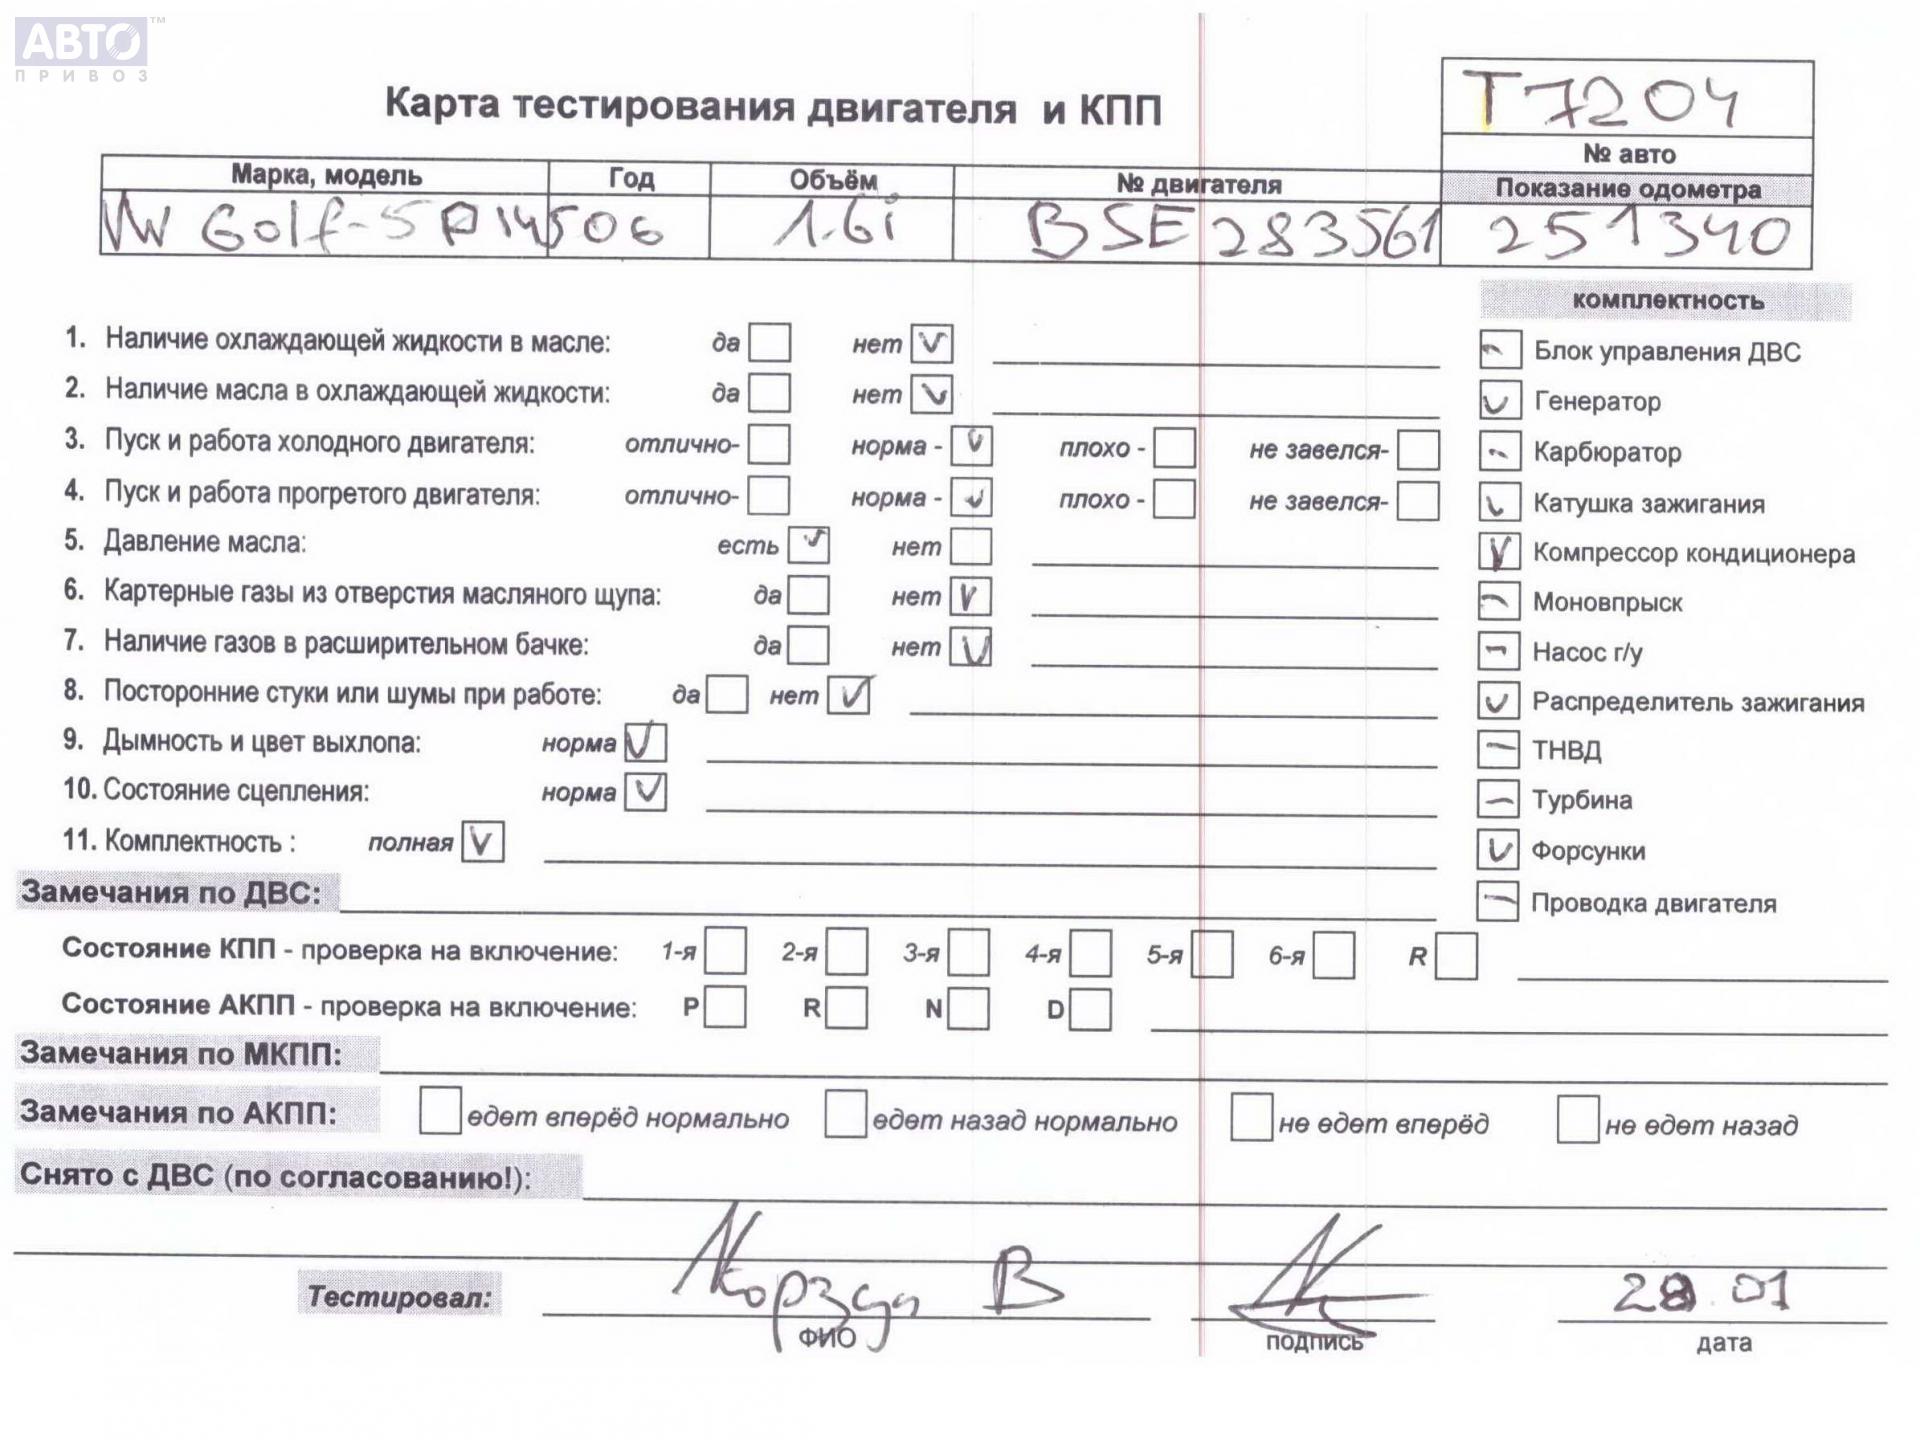 АВТО™
ПРИВОЗ
Карта тестирования двигателя и КПП
T7204
№ авто
Марка, модель Год Объём № двигателя Показание одометра
VW Golf-5 06 1.6i BSE 283561 251340
комплектность
1. Наличие охлаждающей жидкости в масле: да нет
Блок управления ДВС
2. Наличие масла в охлаждающей жидкости: да нет
Генератор
3. Пуск и работа холодного двигателя: отлично- норма - плохо - не завелся-
Карбюратор
4. Пуск и работа прогретого двигателя: отлично- норма - плохо - не завелся-
Катушка зажигания
5. Давление масла: есть нет
Компрессор кондиционера
6. Картерные газы из отверстия масляного щупа: да нет
Моновпрыск
7. Наличие газов в расширительном бачке: да нет
Насос г/у
8. Посторонние стуки или шумы при работе: да нет
Распределитель зажигания
9. Дымность и цвет выхлопа: норма
ТНВД
10. Состояние сцепления: норма
Турбина
11. Комплектность : полная
Форсунки
Замечания по ДВС:
Проводка двигателя
Состояние КПП - проверка на включение: 1-я 2-я 3-я 4-я 5-я 6-я R
Состояние АКПП - проверка на включение: P R N D
Замечания по МКПП:
Замечания по АКПП: едет вперёд нормально едет назад нормально не едет вперёд не едет назад
Снято с ДВС (по согласованию!):
Тестировал: В 28.01
ФИО подпись дата